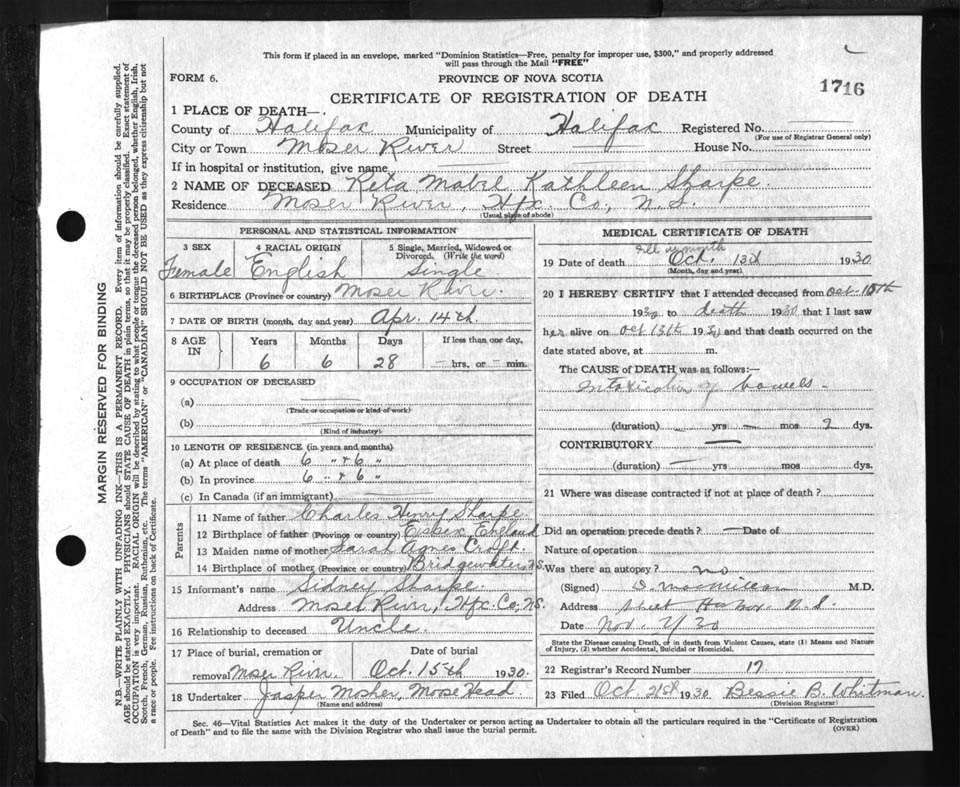 This form if placed in an envelope, marked "Dominion Statistics—Free, penalty for improper use, $300," and properly addressed
will pass through the Mail "FREE"
FORM 6.
PROVINCE OF NOVA SCOTIA
1716
CERTIFICATE OF REGISTRATION OF DEATH
1 PLACE OF DEATH—
County of Halifax Municipality of Halifax Registered No.
(For use of Registrar General only)
City or Town Moser River Street House No.
If in hospital or institution, give name
2 NAME OF DECEASED Reta Mabel Kathleen Sharpe.
Residence Moser River, Hfx. Co., N.S.
(Usual place of abode)
PERSONAL AND STATISTICAL INFORMATION
3 SEX 4 RACIAL ORIGIN 5 Single, Married, Widowed or
Divorced. (Write the word)
Female English Single.
6 BIRTHPLACE (Province or country) Moser River.
7 DATE OF BIRTH (month, day and year) Apr. 14th.
8 AGE IN Years Months Days If less than one day,
6 6 28 — hrs. or — min.
9 OCCUPATION OF DECEASED
(a)
(Trade or occupation or kind of work)
(b)
(Kind of industry)
10 LENGTH OF RESIDENCE (in years and months)
(a) At place of death 6 " + 6 "
(b) In province 6 " + 6 "
(c) In Canada (if an immigrant)
Parents
11 Name of father Charles Henry Sharpe.
12 Birthplace of father (Province or country) Essex, England
13 Maiden name of mother Sarah Agnes Croft.
14 Birthplace of mother (Province or country) Bridgewater N.S.
15 Informant's name Sidney Sharpe.
Address Moser River, Hfx. Co., N.S.
16 Relationship to deceased Uncle.
17 Place of burial, cremation or Date of burial
removal Moser River. Oct. 15th 1930.
18 Undertaker Jasper Mosher, Mose Head.
(Name and address)
MEDICAL CERTIFICATE OF DEATH
19 Date of death Oct. 13th 1930
(Month, day and year)
20 I HEREBY CERTIFY that I attended deceased from Oct-10th
1930 to death 1930 that I last saw
her alive on Oct 13th 1930 and that death occurred on
date stated above, at m.
The CAUSE of DEATH was as follows:—
Intoxication of bowels-
(duration) — yrs — mos 2 dys.
CONTRIBUTORY —
(duration) — yrs mos. dys.
21 Where was disease contracted if not at place of death?
Did an operation precede death? — Date of
Nature of operation
Was there an autopsy? no
(Signed) D. MacMillan M.D.
Address Sheet Harbor N.S.
Date Nov. 2/30
State the Disease causing Death, or in death from Violent Causes, state (1) Means and Nature
of Injury, (2) whether Accidental, Suicidal or Homicidal.
22 Registrar's Record Number 17
23 Filed Oct 21st 1930 Bessie B. Whitman.
(Division Registrar)
Sec. 46—Vital Statistics Act makes it the duty of the Undertaker or person acting as Undertaker to obtain all the particulars required in the "Certificate of Registration
of Death" and to file the same with the Division Registrar who shall issue the burial permit.
(OVER)
MARGIN RESERVED FOR BINDING
N.B.—WRITE PLAINLY WITH UNFADING INK—THIS IS A PERMANENT RECORD. Every item of information should be carefully supplied.
AGE should be stated EXACTLY. PHYSICIANS should STATE CAUSE OF DEATH in plain terms, so that it may be properly classified. Exact statement of
OCCUPATION is very important. RACIAL ORIGIN will be described by stating to what people or tongue the deceased person belonged, whether English, Irish,
Scotch, French, German, Russian, Ruthenian, etc. The terms "AMERICAN" or "CANADIAN" SHOULD NOT BE USED as they express citizenship but not
a race or people. Fee instructions on back of Certificate.